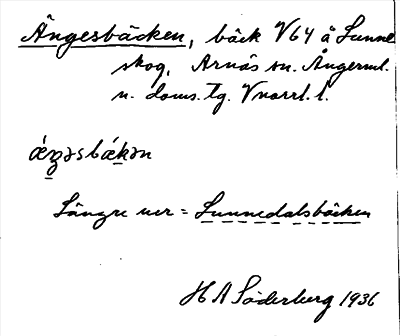 Ängesbäcken, bäck V64 å Sunne
skog, Arnäs sn. Ångerml.
n. doms. tg. Vnorrl. l.
ǽŋəsbækən
Längre ner = Sunnedalsbäcken
H A Söderberg 1936